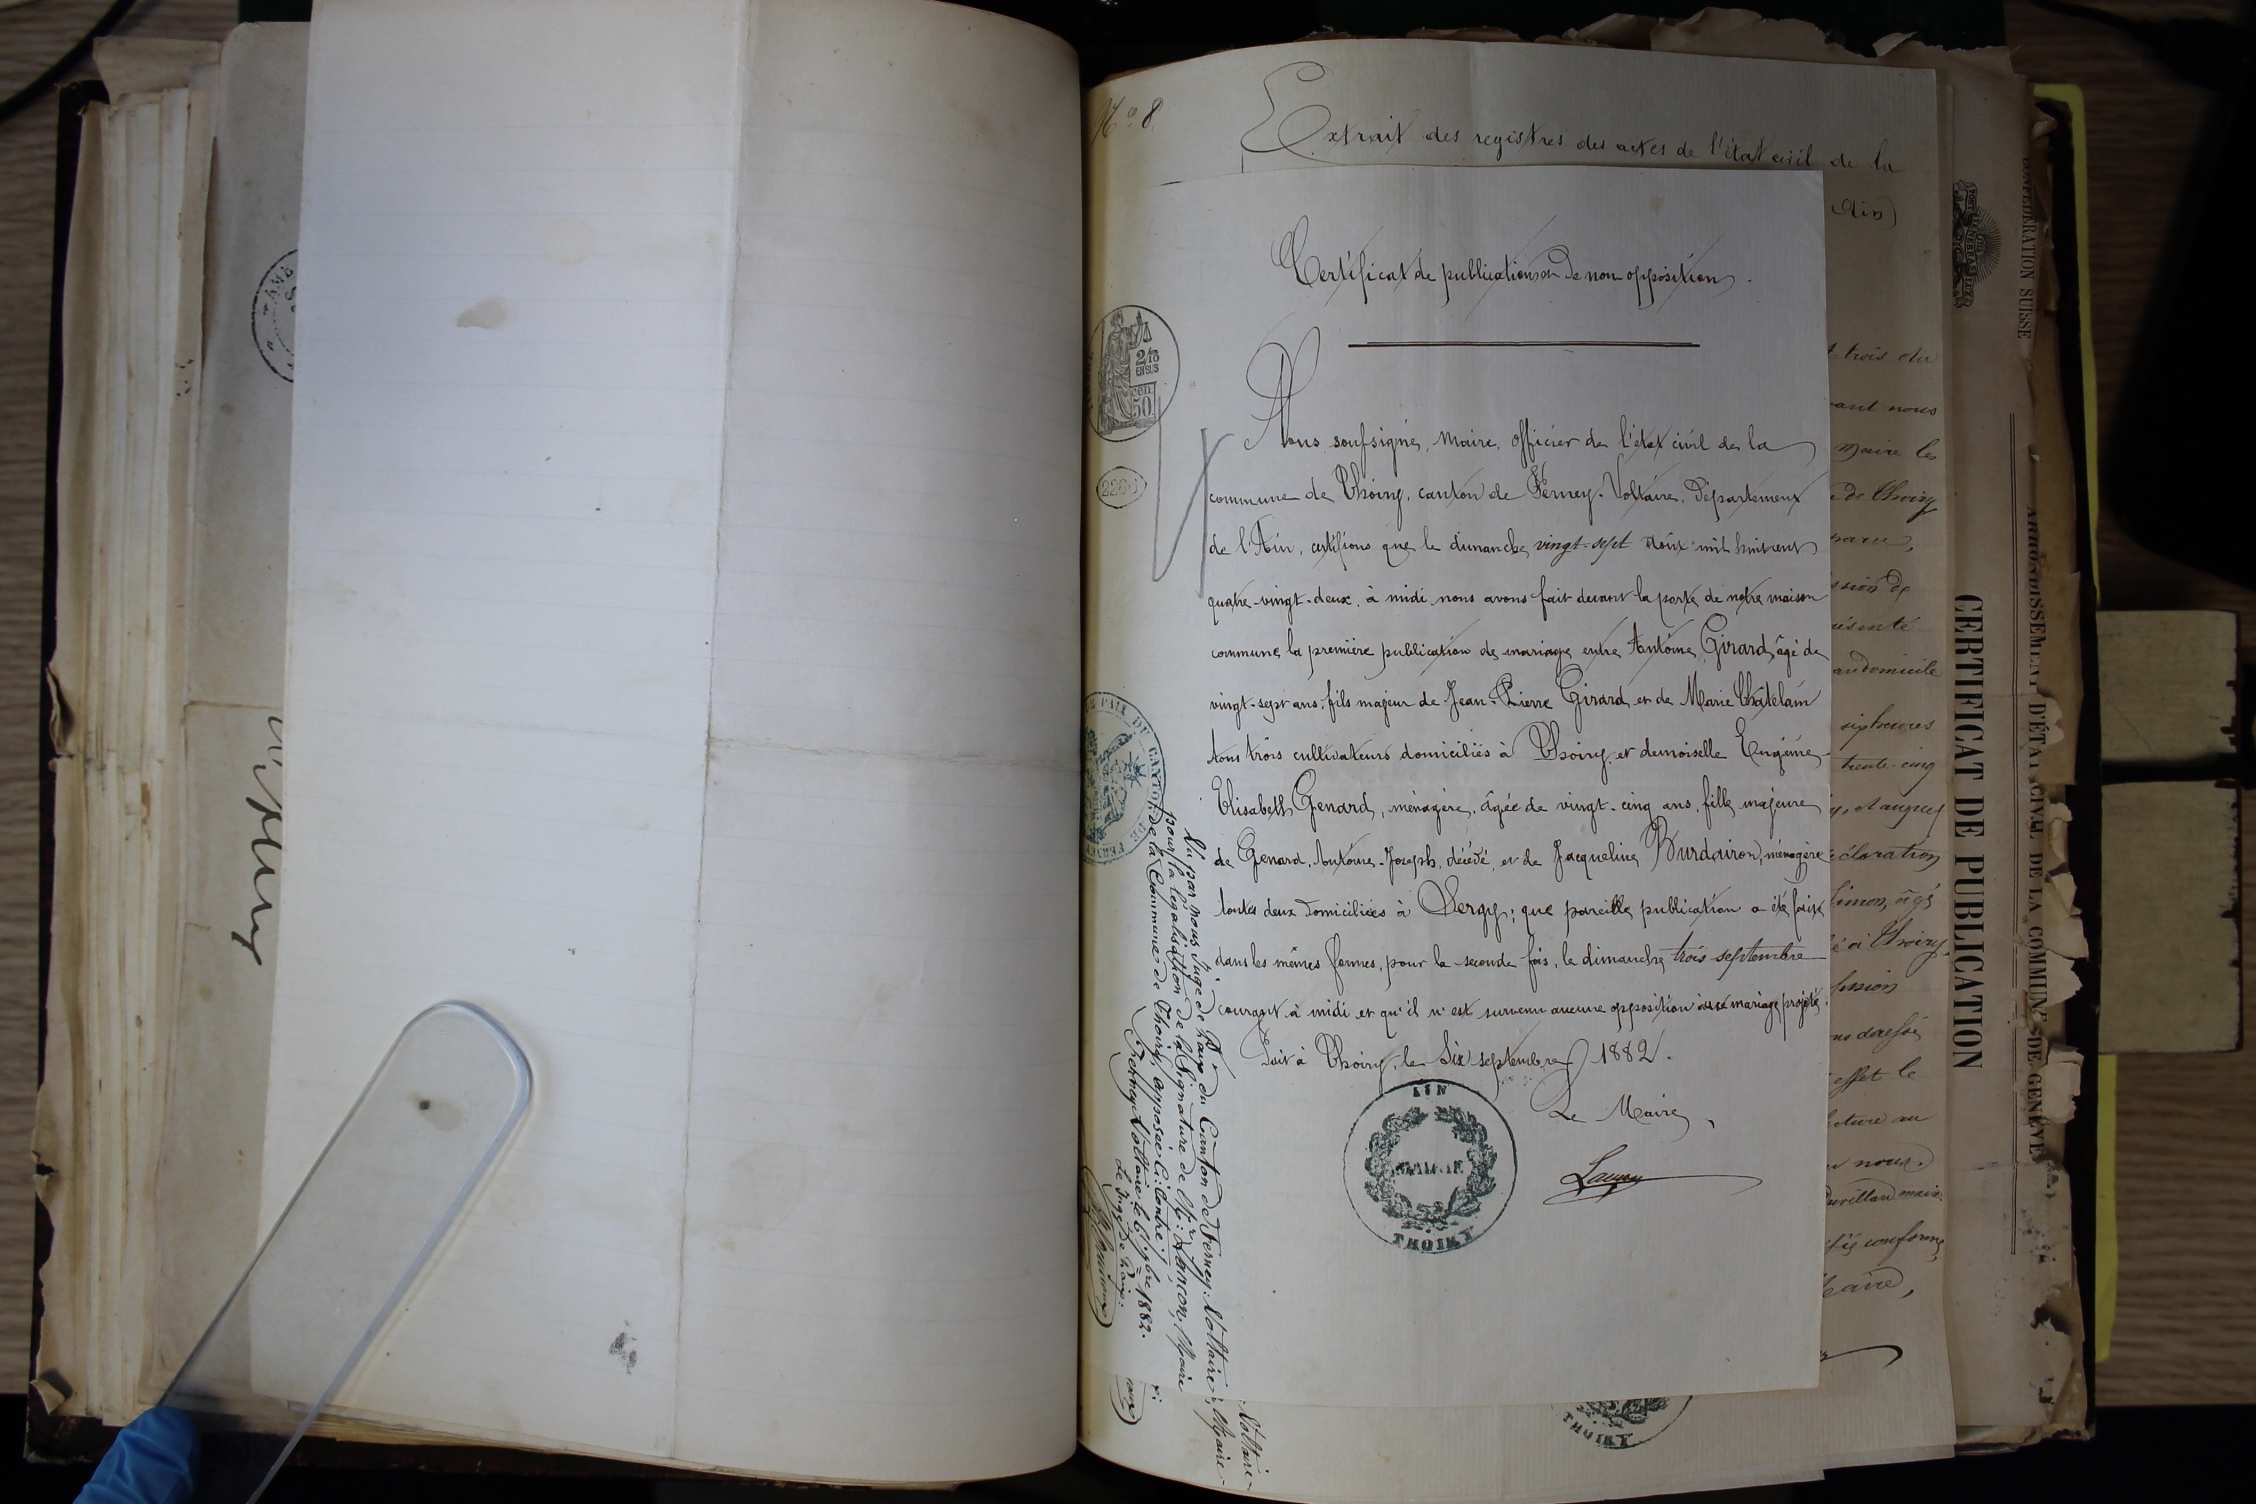 N° 8
Extrait des registres des actes de l'état civil de la
Ain)
Certificat de publication et de non opposition.
2/10
EN SUS
50
Nous soussigné, Maire, officier de l'état civil de la
commune de Thoiry, canton de Ferney-Voltaire, Département
de l'Ain, certifions que le dimanche vingt-sept Août mil huit cent
quatre-vingt-deux, à midi, nous avons fait devant la porte de notre maison
commune la première publication de mariage entre Antoine Girard, âgé de
vingt-sept ans, fils majeur de Jean-Pierre Girard et de Marie Châtelain
tous trois cultivateurs domiciliés à Thoiry, et demoiselle Eugénie-
Elisabeth Genard, ménagère, âgée de vingt-cinq ans, fille majeure
de Genard, Antoine-Joseph, décédé, et de Jacqueline Burdairon, ménagère
toutes deux domiciliées à Sergy; que pareille publication a été faite
dans les mêmes formes, pour la seconde fois, le dimanche trois septembre
courant à midi et qu'il n'est survenu aucune opposition mariage projeté.
Fait à Thoiry, le Six septembre 1882.
Le Maire,
AIN
MAIRIE
THOIRY
Vu par nous Juge de Paix du Canton de Ferney-Voltaire,
pour la légalisation de la Signature de Mr: Lançon, Maire
de la Commune de Thoiry, apposée Ci: Contre.
Ferney-Voltaire le 6 7bre 1882.
Le Juge de Paix:
-Voltaire-
Maire-
t trois du
vant nous
maire les
de Thoiry
ssion de
au domicile
six heures
trente-cinq
éclaration
âgé
à Thoiry
fession
effet le
nous
conforme
Maire,
THOIRY
CONFÉDÉRATION SUISSE
ARRONDISSEMENT D'ÉTAT CIVIL DE LA COMMUNE DE GENÈVE
CERTIFICAT DE PUBLICATION